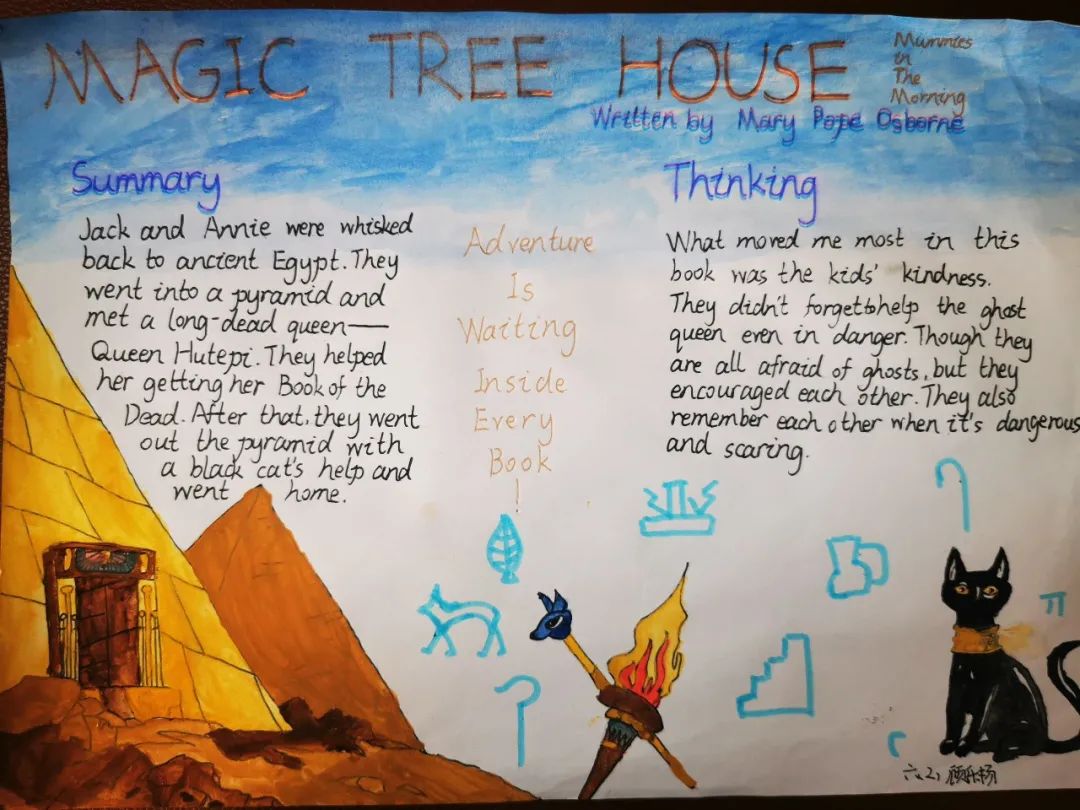 MAGIC TREE HOUSE
Mummies
in
The
Morning
Written by Mary Pope Osborne
Summary
Jack and Annie were whisked
back to ancient Egypt. They
went into a pyramid and
met a long-dead queen——
Queen Hutepi. They helped
her getting her Book of the
Dead. After that, they went
out the pyramid with
a black cat's help and
went home.
Adventure
Is
Waiting
Inside
Every
Book
!
Thinking
What moved me most in this
book was the kids' kindness.
They didn't forget to help the ghost
queen even in danger. Though they
are all afraid of ghosts, but they
encouraged each other. They also
remember each other when it's dangerous
and scaring.
六、2)